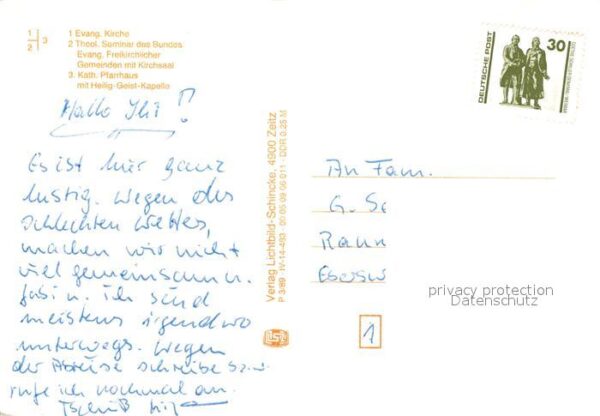 1 Evang. Kirche
2 Theol. Seminar des Bundes
Evang. Freikirchlicher
Gemeinden mit Kirchsaal
3. Kath. Pfarrhaus
mit Heilig-Geist-Kapelle
1
2
3
Hallo Ihr!
Es ist hier ganz
lustig. Wegen des
schlechten Wetters,
machen wir nicht
viel gemeinsam u.
u. ich sind
meistens irgendwo
unterwegs. Wegen
der Abreise schreibe bzw.
rufe ich nochmal an.
Tschüß
Verlag Lichtbild-Schincke, 4900 Zeitz
P 3/89 · IV-14-483 · 01 05 09 06 011 · DDR 0,25 M
DEUTSCHE POST
30
An Fam.
G. Se
Raun
Ebersw
1
privacy protection
Datenschutz